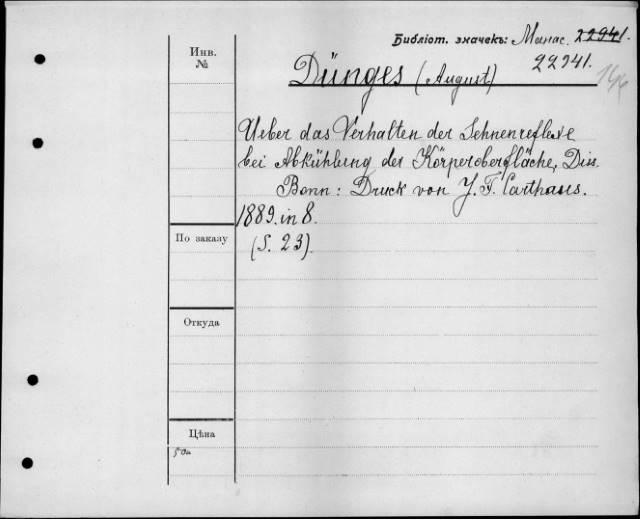 Библіот. значекъ: Манас. 22941.
22941.
Инв.
№
Dünges (August)
Ueber das Verhalten der Sehnenreflexe
bei Abkühlung der Körperoberfläche, Diss.
Bonn: Druck von J. F. Carthaus.
1889. in 8.
По заказу
(S. 23).
Откуда
Цѣна